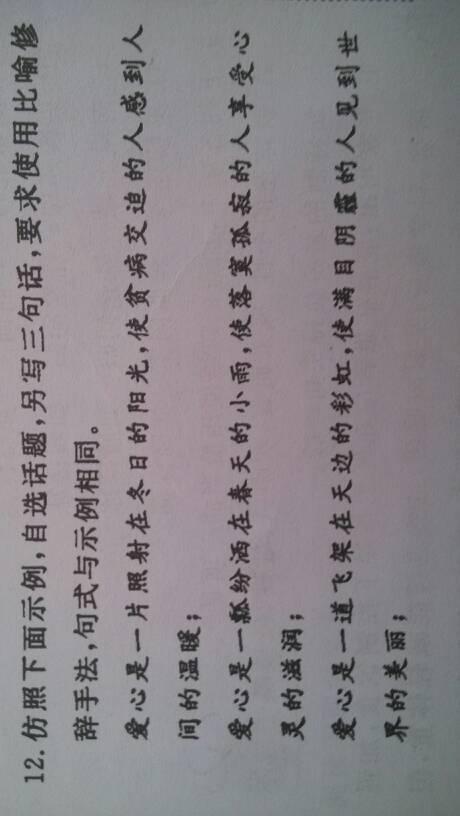 12.仿照下面示例,自选话题,另写三句话,要求使用比喻修
辞手法,句式与示例相同。
爱心是一片照射在冬日的阳光,使贫病交迫的人感到人
间的温暖;
爱心是一瓢纷洒在春天的小雨,使落寞孤寂的人享受心
灵的滋润;
爱心是一道飞架在天边的彩虹,使满目阴霾的人见到世
界的美丽;